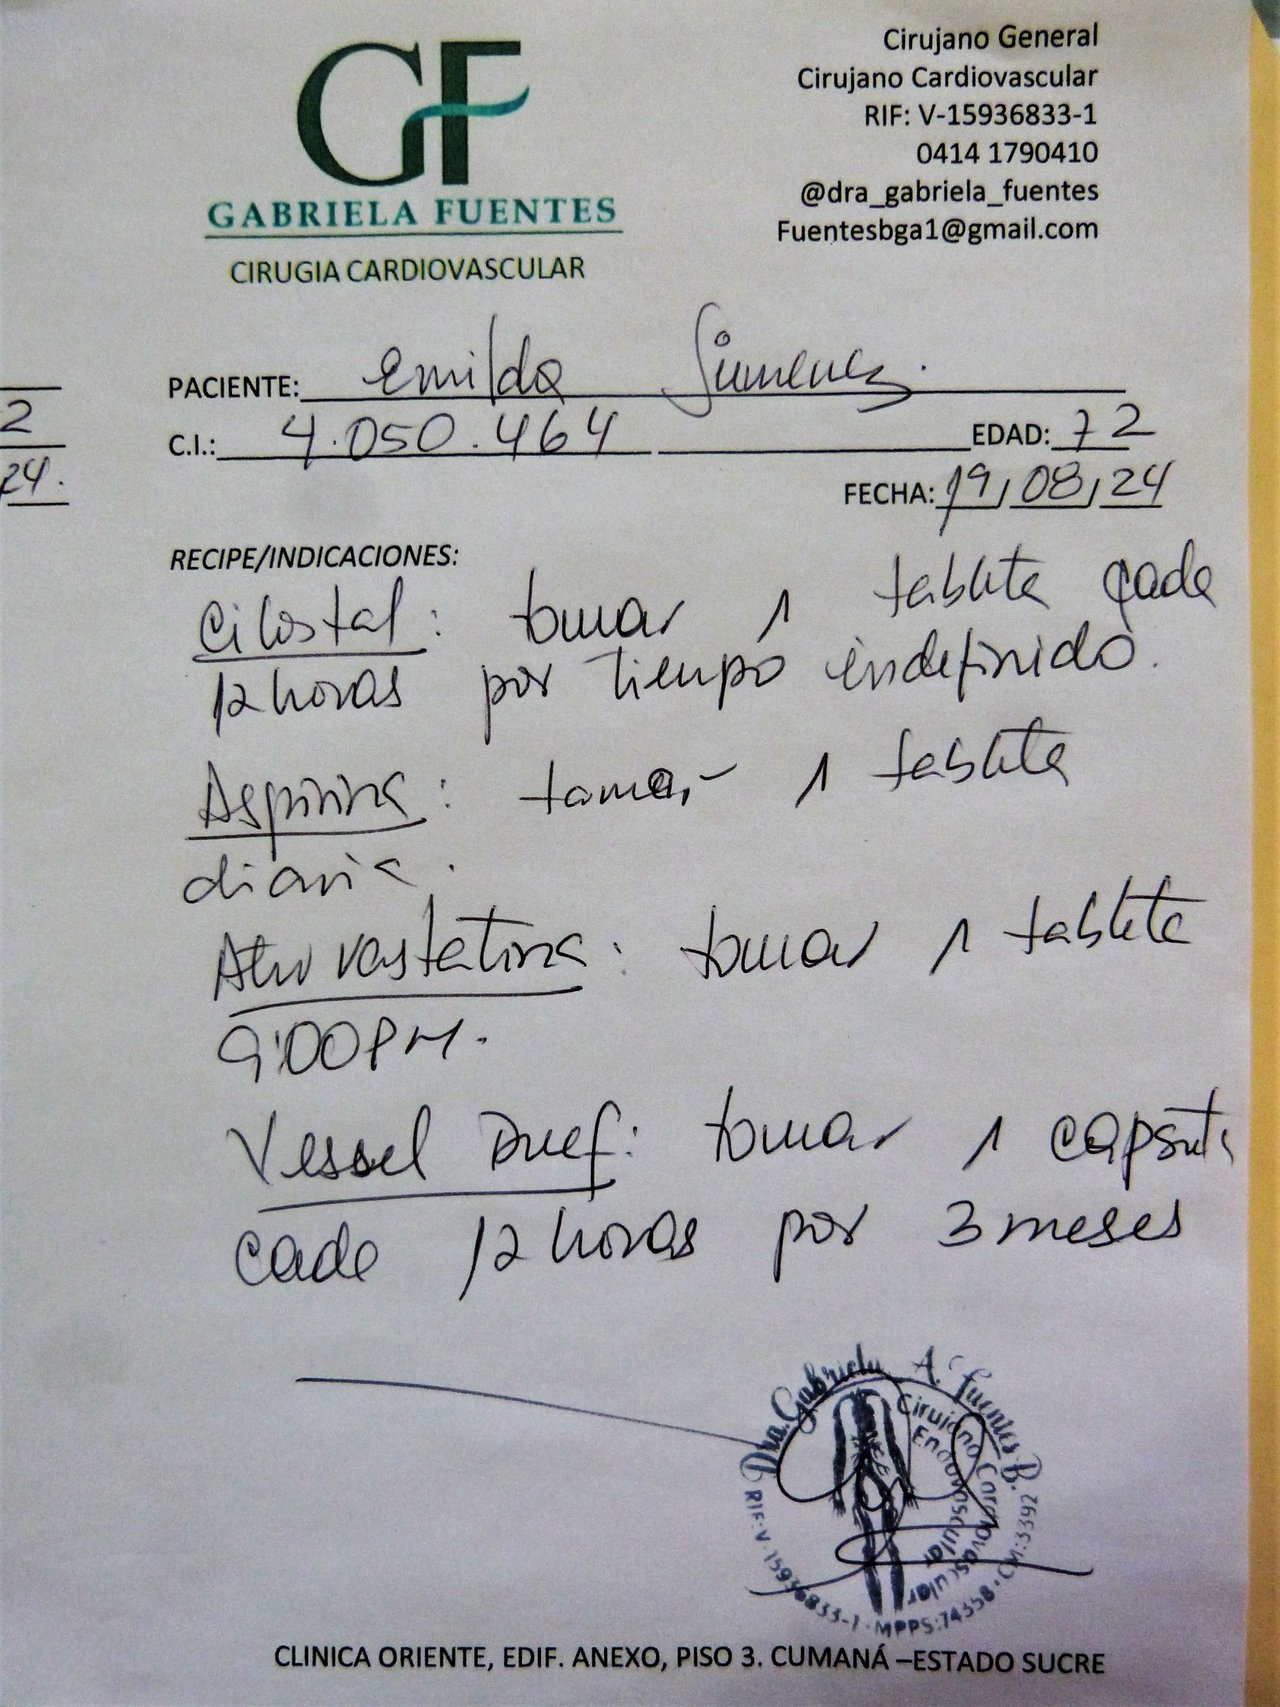 GF
GABRIELA FUENTES
CIRUGIA CARDIOVASCULAR
Cirujano General
Cirujano Cardiovascular
RIF: V-15936833-1
0414 1790410
@dra_gabriela_fuentes
Fuentesbga1@gmail.com
PACIENTE: Emilda Jimenez.
C.I.: 4.050.464 EDAD: 72
2
FECHA: 19/08/24
24.
RECIPE/INDICACIONES:
Cilostal: tomar 1 tableta cada
12 horas por tiempo indefinido.
Aspirina: tomar 1 tableta
diaria.
Atorvastatina: tomar 1 tableta
9:00 PM.
Vessel Duef: tomar 1 capsula
cada 12 horas por 3 meses
Dra. Gabriela A. Fuentes B.
Cirujano Cardiovascular
Endovascular
RIF: V-15936833-1 · MPPS: 74358 · CM: 3392
CLINICA ORIENTE, EDIF. ANEXO, PISO 3. CUMANÁ –ESTADO SUCRE